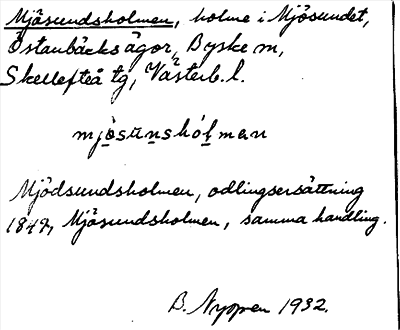 Mjösundsholmen, holme i Mjösundet,
Östanbäcks ägor, Byske sn,
Skellefteå tg, Västerb. l.
mjösu̇nshólman
Mjödsundsholmen, odlingsersättning
1849, Mjösundsholmen, samma handling.
B. Nyppen 1932.